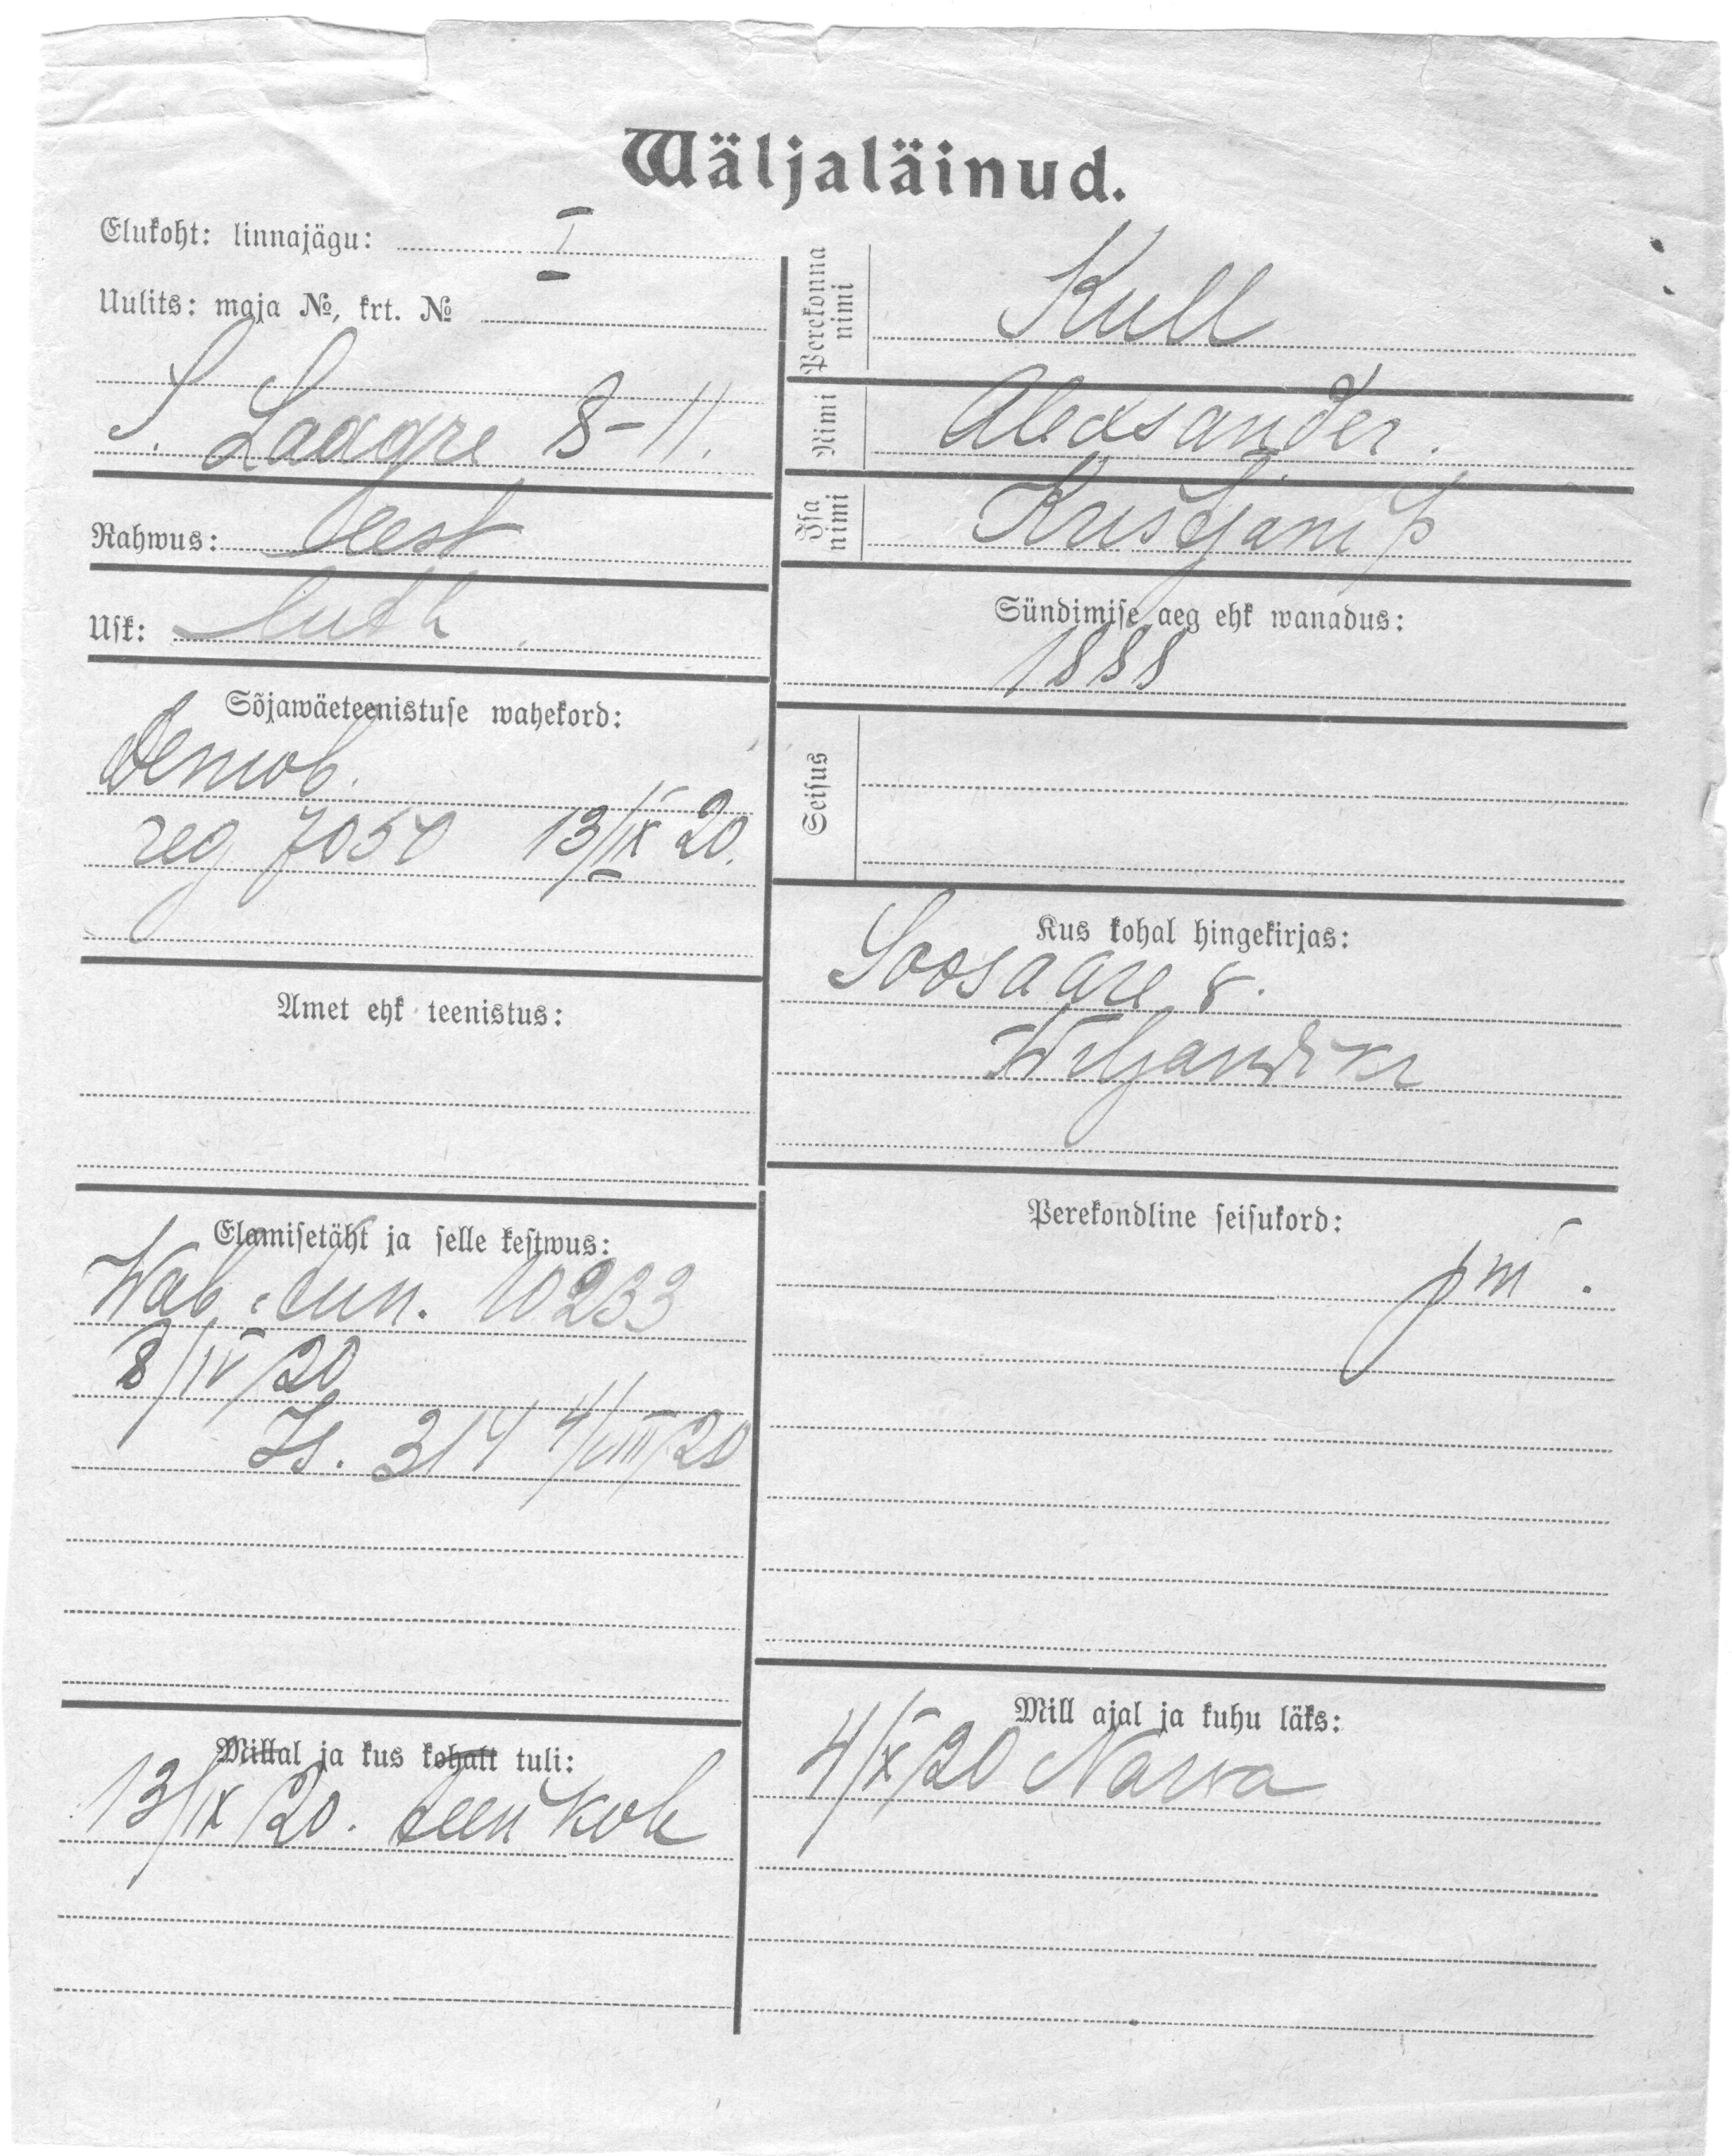 Wäljaläinud.
Elukoht: linnajägu: I
Uulits: maja №, krt. №
S. Laagre 8-11.
Rahwus: eest
Usk: luth.
Sõjawäeteenistuse wahekord:
Demob.
reg 7050 13/IX 20.
Amet ehk teenistus:
Elamisetäht ja selle kestwus:
Wab. tun. 10233
8/IV/20
Is. 314 4/VIII/20
Millal ja kus kohalt tuli:
13/IX/20. teen koh
Perekonna nimi Kull
Nimi Alexsander.
Isa nimi Kristjani p
Sündimise aeg ehk wanadus:
1888
Seisus
Kus kohal hingekirjas:
Soosaare
Wiljandi kr
Perekondline seisukord:
Mill ajal ja kuhu läks:
4/X/20 Narva